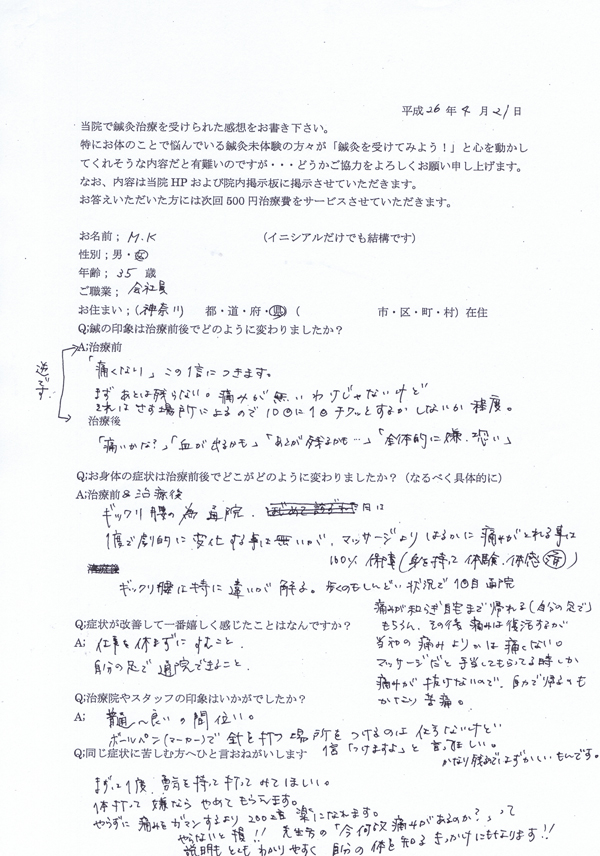 平成 26 年 4 月 21 日
当院で鍼灸治療を受けられた感想をお書き下さい。
特にお体のことで悩んでいる鍼灸未体験の方々が「鍼灸を受けてみよう！」と心を動かし
てくれそうな内容だと有難いのですが・・・どうかご協力をよろしくお願い申し上げます。
なお、内容は当院 HP および院内掲示板に掲示させていただきます。
お答えいただいた方には次回 500 円治療費をサービスさせていただきます。
お名前； M.K （イニシアルだけでも結構です）
性別；男・女
年齢； 35 歳
ご職業； 会社員
お住まい；（神奈川 都・道・府・県）（ 市・区・町・村）在住
Q;鍼の印象は治療前後でどのように変わりましたか？
逆です
A;治療前
「痛くない」この1信につきます。
まずあとは残らない。痛みが無いわけじゃないけど
それはさす場所によるので10回に1回チクッとするかしないか程度。
治療後
「痛いかな？」「血が出るかも」「あとが残るかも…」「全体的に嫌・恐い」
Q;お身体の症状は治療前後でどこがどのように変わりましたか？（なるべく具体的に）
A;治療前&治療後
ギックリ腰の為通院。
1度で劇的に変化する事は無いが、マッサージよりはるかに痛みがとれる事は
100% 保障（身を持って体験、体感済）
ギックリ腰は特に違いが解る。歩くのもしんどい状況で1回目通院
痛みが和らぎ自宅まで帰れる（自分の足で）
もちろん、その後痛みは復活するが
当初の痛みよりかは痛くない。
マッサージだと手当してもらってる時しか
痛みが抜けないので、自力で帰るのも
かなり苦痛。
Q;症状が改善して一番嬉しく感じたことはなんですか？
A; 仕事を休まずにすむこと。
自分の足で通院できること。
Q;治療院やスタッフの印象はいかがでしたか？
A; 普通〜良いの間位い。
ボールペン（マーカー）で針を打つ場所をつけるのは仕方ないけど
1信「つけますよ」と言って欲しい。
かなり残るのではずかしいもんです。
Q;同じ症状に苦しむ方へひと言おねがいします
まずは1度、勇気を持って打ってみてほしい。
1本打って嫌ならやめてもらえます。
やらずに痛みをガマンするより200%楽になれます。
やらないと損!! 先生方の「今何故痛みがあるのか？」って
説明もとてもわかりやすく自分の体を知るきっかけにもなります!!